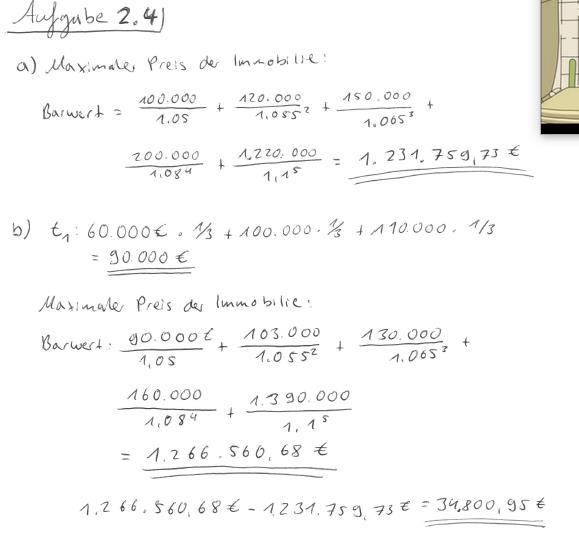 Aufgabe 2.4)
a) Maximaler Preis der Immobilie:
Barwert = 100.000/1.05 + 120.000/1.055² + 150.000/1.065³ +
200.000/1.08⁴ + 1.220.000/1,1⁵ = 1.231.759,73 €
b) t₁: 60.000€ · 1/3 + 100.000 · 1/3 + 110.000 · 1/3
= 90.000 €
Maximaler Preis der Immobilie:
Barwert: 90.000€/1,05 + 103.000/1.055² + 130.000/1.065³ +
160.000/1,08⁴ + 1.390.000/1,1⁵
= 1.266.560,68 €
1.266.560,68€ - 1231.759,73€ = 34.800,95 €